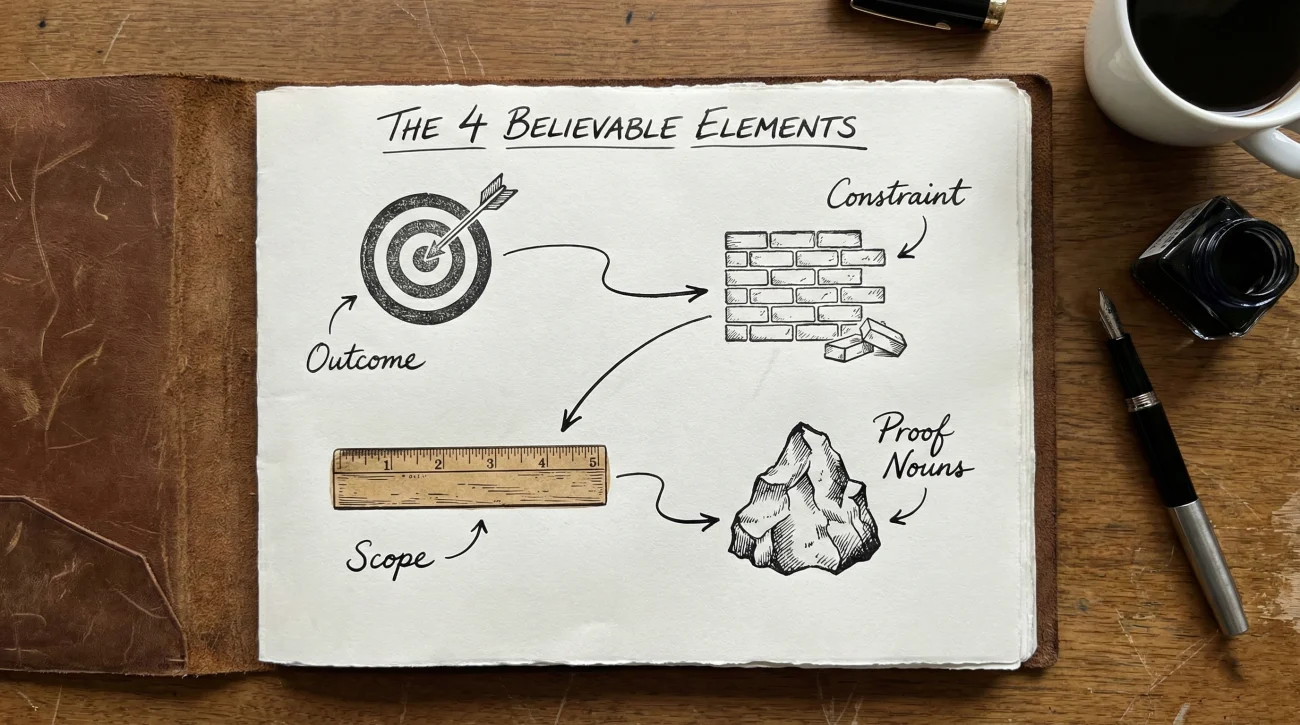 THE 4 BELIEVABLE ELEMENTS
Outcome
Constraint
1 2 3 4 5
Scope
Proof
Nouns